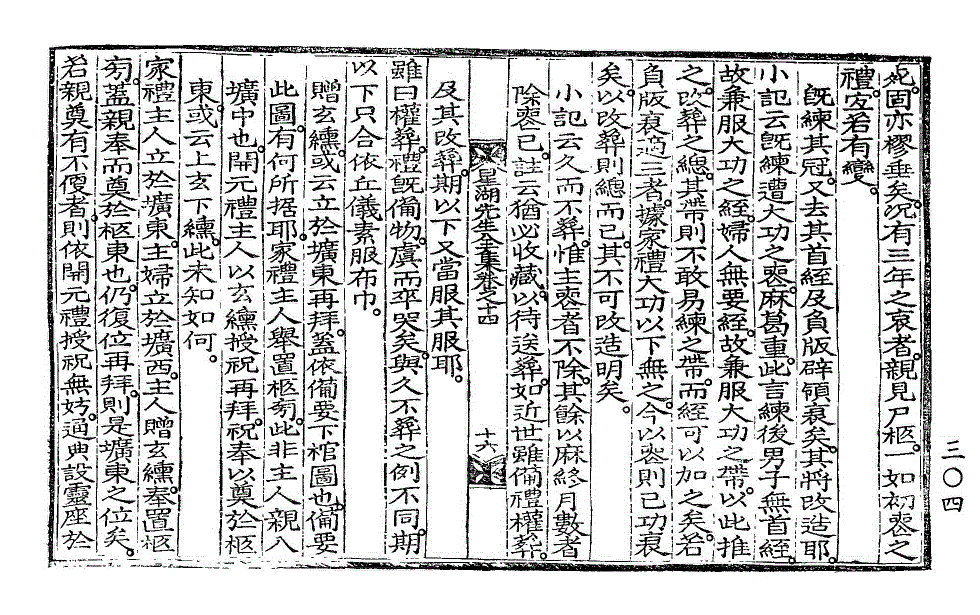 宛固亦樛垂矣。况有三年之哀者。親見尸柩。一如初喪之
禮。安若有變。
旣練其冠。又去其首絰及負版辟領衰矣。其將改造耶。
小記云旣練遭大功之喪。麻葛重。此言練後男子無首絰。
故兼服大功之絰。婦人無要絰。故兼服大功之帶。以此推
之。改葬之緦。其帶則不敢易練之帶。而絰可以加之矣。若
負版衰適三者。據家禮大功以下無之。今以喪則已功衰
矣。以改葬則緦而已。其不可改造明矣。
小記云久而不葬。惟主喪者不除。其餘以麻終月數者
除喪已。註云猶必收藏。以待送葬。如近世雖備禮權葬。
及其改葬。期以下又當服其服耶。
雖曰權葬。禮旣備物。虞而卒哭矣。與久不葬之例不同。期
以下只合依丘儀素服布巾。
贈玄纁。或云立於壙東再拜。蓋依備要下棺圖也。備要
此圖。有何所据耶。家禮主人舉置柩旁。此非主人親入
壙中也。開元禮主人以玄纁授祝再拜。祝奉以奠於柩
東。或云上玄下纁。此未知如何。
家禮主人立於壙東。主婦立於壙西。主人贈玄纁。奉置柩
旁。蓋親奉而奠於柩東也。仍復位再拜。則是壙東之位矣。
若親奠有不便者。則依開元禮授祝無妨。通典設靈座於
星湖先生全集卷之十四
十六
三〇四